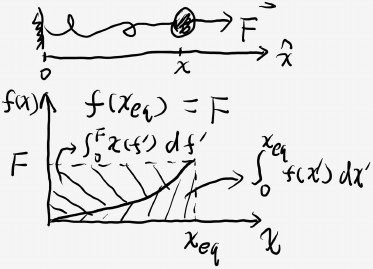 F⃗
0 x x̂
f(x) f(x_eq) = F
∫₀^F x(f') df'
F ∫₀^{x_eq} f(x') dx'
x_eq x